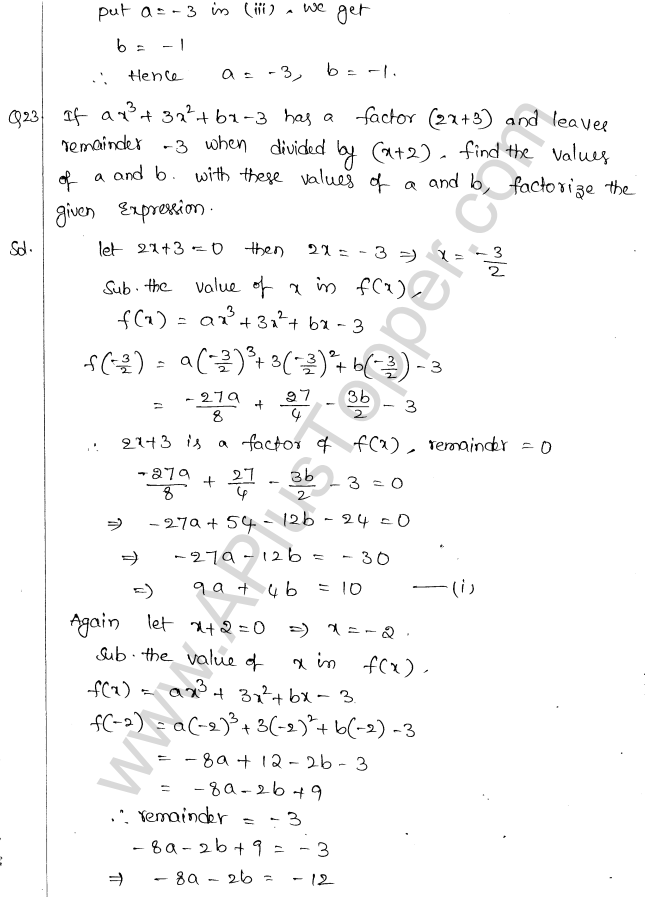 put a = -3 in (iii), we get
b = -1
∴ Hence a = -3, b = -1.
Q23. If ax³ + 3x² + bx - 3 has a factor (2x+3) and leaves
remainder -3 when divided by (x+2), find the values
of a and b. with these values of a and b, factorize the
given expression.
Sol. let 2x+3 = 0 then 2x = -3 ⇒ x = -3/2
Sub. the value of x in f(x),
f(x) = ax³ + 3x² + bx - 3
f(-3/2) = a(-3/2)³ + 3(-3/2)² + b(-3/2) - 3
= -27a/8 + 27/4 - 3b/2 - 3
∴ 2x+3 is a factor of f(x), remainder = 0
-27a/8 + 27/4 - 3b/2 - 3 = 0
⇒ -27a + 54 - 12b - 24 = 0
⇒ -27a - 12b = -30
⇒ 9a + 4b = 10 —(i)
Again let x+2=0 ⇒ x = -2.
Sub. the value of x in f(x).
f(x) = ax³ + 3x² + bx - 3
f(-2) = a(-2)³ + 3(-2)² + b(-2) - 3
= -8a + 12 - 2b - 3
= -8a - 2b + 9
∴ remainder = -3
-8a - 2b + 9 = -3
⇒ -8a - 2b = -12
www.APlusTopper.com